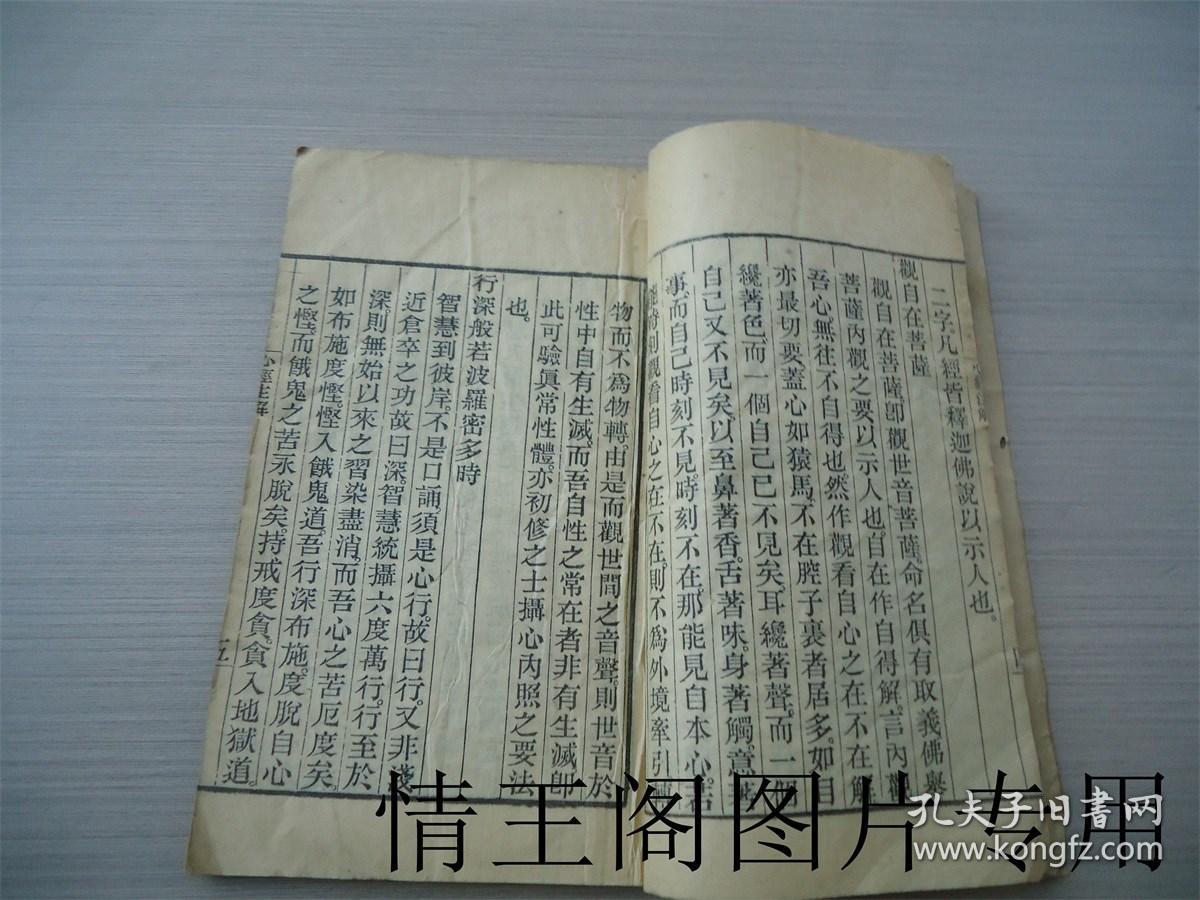 二字凡經皆釋迦佛說以示人也。
觀自在菩薩
觀自在菩薩。卽觀世音菩薩。命名俱有取義。佛舉
菩薩內觀之要以示人也。自在作自得解。言內觀
吾心。無往不自得也。然作觀看自心之在不在解
亦最切要。蓋心如猿馬。不在腔子裏者居多。如目
纔著色。而一個自己已不見矣。耳纔著聲。而一個
自己又不見矣。以至鼻著香。舌著味。身著觸。意著
事。而自己時刻不見。時刻不在。那能見自本心。若
能時刻觀看自心之在不在。則不爲外境牽引。
物而不爲物轉。由是而觀世間之音聲。則世音於
性中自有生滅。而吾自性之常在者非有生滅。卽
此可驗眞常性體。亦初修之士攝心內照之要法
也。
行深般若波羅密多時
智慧到彼岸。不是口誦。須是心行。故曰行。又非淺
近倉卒之功。故曰深。智慧統攝六度萬行。行至於
深。則無始以來之習染盡消。而吾心之苦厄度矣。
如布施度慳。慳入餓鬼道。吾行深布施。度脫自心
之慳。而餓鬼之苦永脫矣。持戒度貪。貪入地獄道。
心經註解
五
情王阁图片专用
孔夫子旧书网
www.kongfz.com